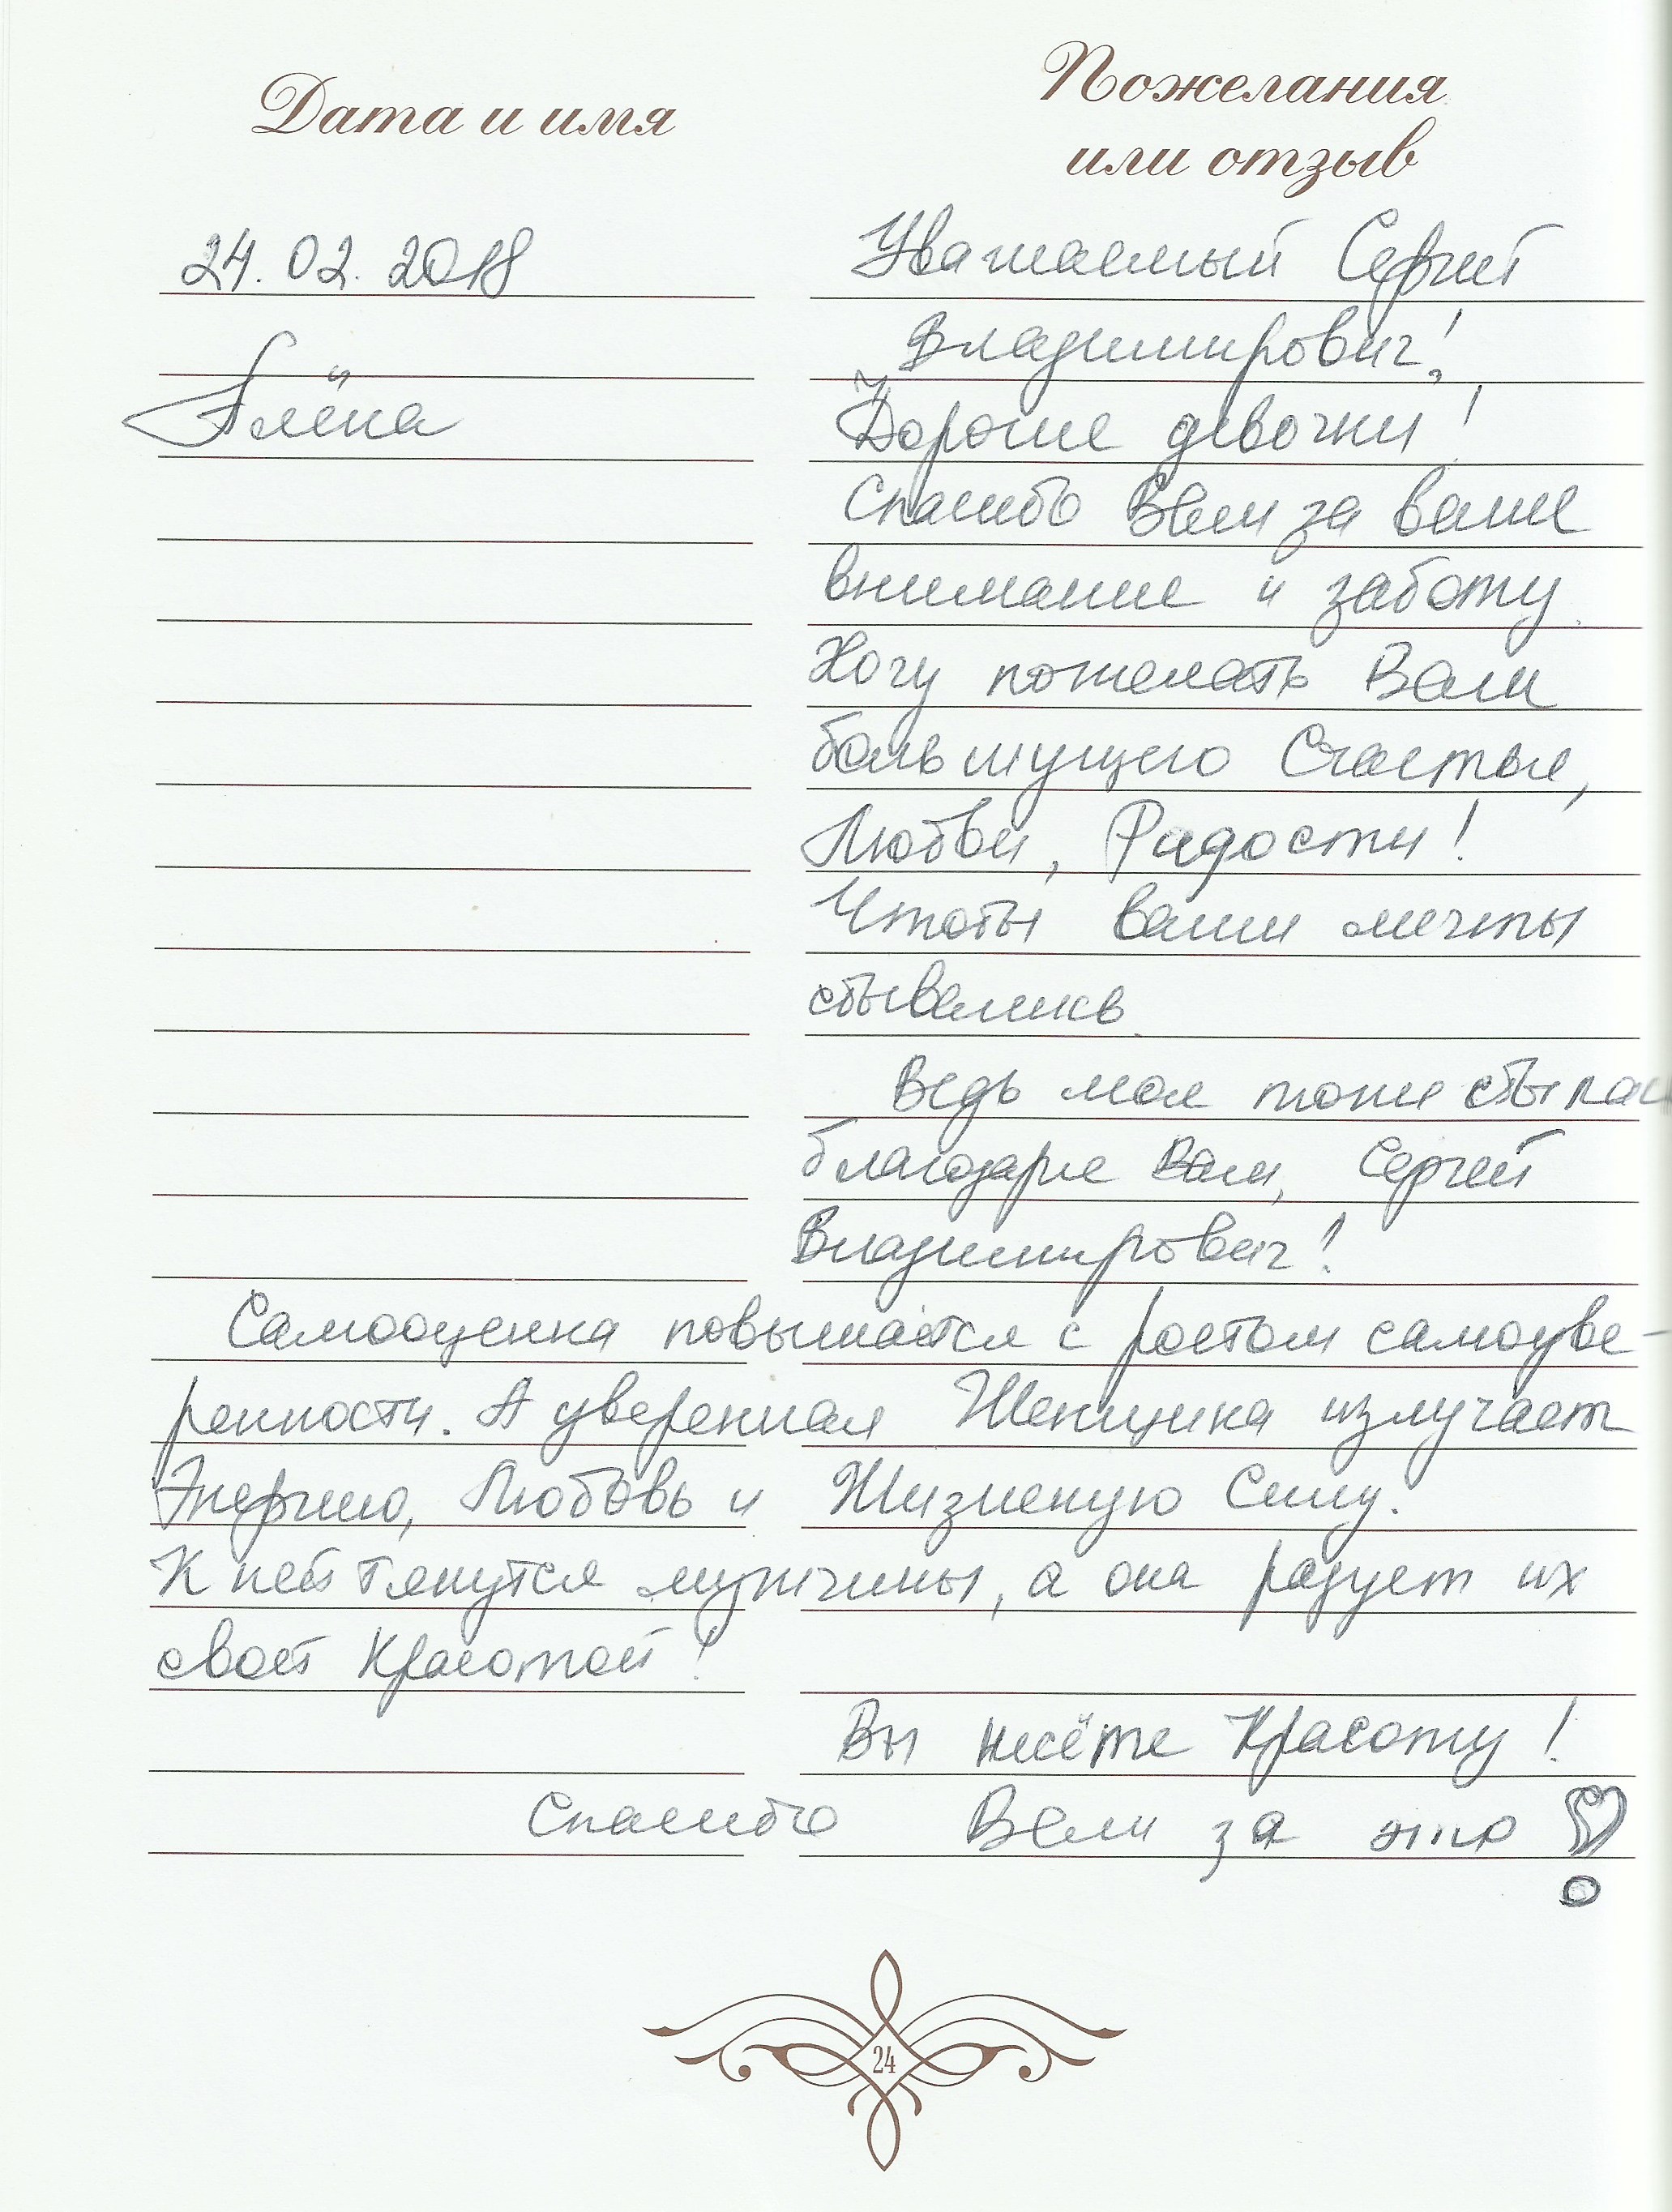 Дата и имя
Пожелания
или отзыв
24.02.2018
Алёна
Уважаемый Сергей
Владимирович!
И Дорогие девочки!
Спасибо Вам за ваше
внимание и заботу.
Хочу пожелать Вам
большущего Счастья,
Любви, Радости!
Чтобы ваши мечты
сбывались.
Ведь моя тоже сбылась
благодаря Вам, Сергей
Владимирович!
Самооценка повышается с ростом самоуве-
ренности. А уверенная Женщина излучает
Энергию, Любовь и Жизненую Силу.
К ней тянутся мужчины, а она радует их
своей Красотой!
Вы несёте Красоту!
Спасибо Вам за это
24